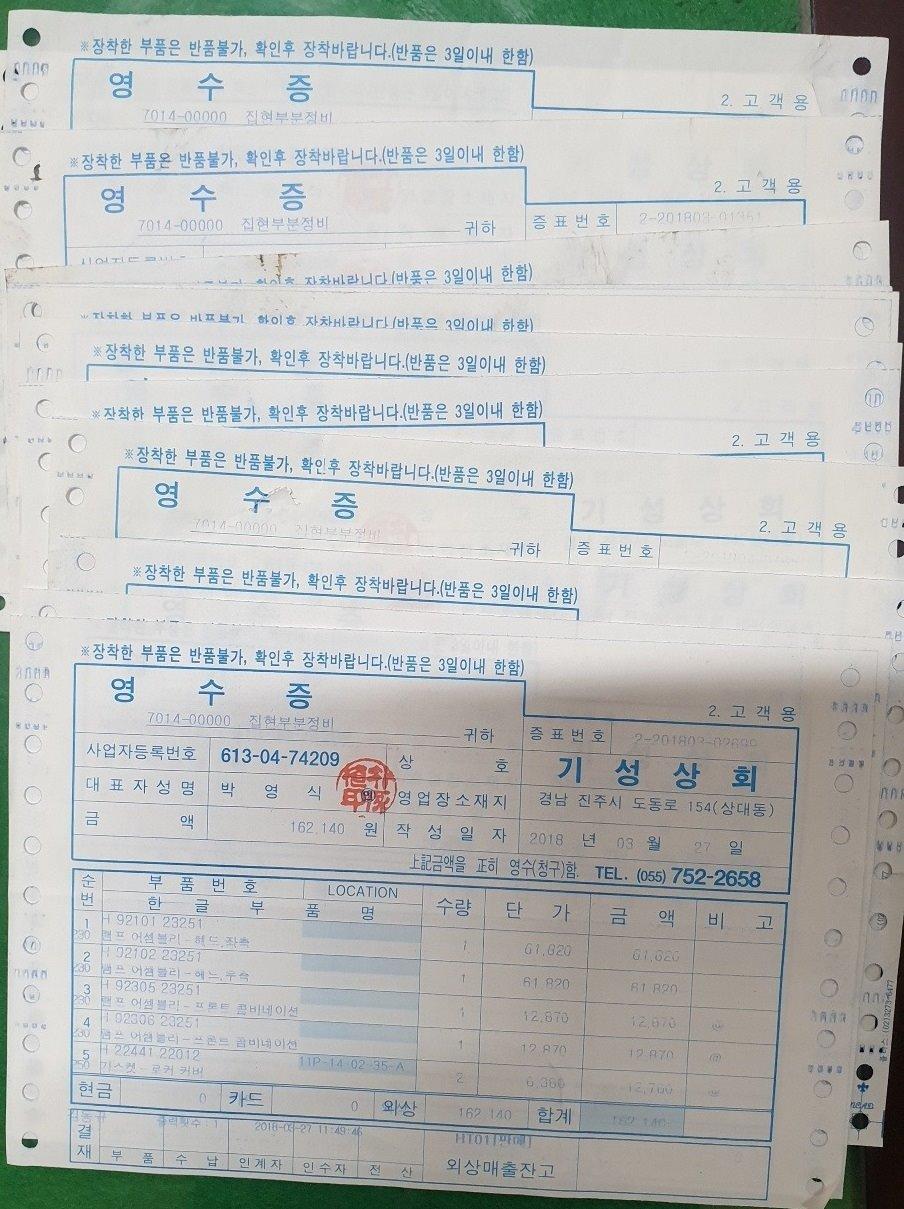 ※장착한 부품은 반품불가, 확인후 장착바랍니다.(반품은 3일이내 한함)
영 수 증
2. 고 객 용
7014-00000 집현부분정비
※장착한 부품은 반품불가, 확인후 장착바랍니다.(반품은 3일이내 한함)
영 수 증
2. 고 객 용
7014-00000 집현부분정비 귀하
증 표 번 호 2-201803-01361
사업자등록번호
장착바랍니다.(반품은 3일이내 한함)
※장착한 부품은 반품불가, 확인후 장착바랍니다.(반품은 3일이내 한함)
※장착한 부품은 반품불가, 확인후 장착바랍니다.(반품은 3일이내 한함)
※장착한 부품은 반품불가, 확인후 장착바랍니다.(반품은 3일이내 한함)
2. 고 객 용
※장착한 부품은 반품불가, 확인후 장착바랍니다.(반품은 3일이내 한함)
영 수 증
2. 고 객 용
7014-00000 집현부분정비 귀하
증 표 번 호
※장착한 부품은 반품불가, 확인후 장착바랍니다.(반품은 3일이내 한함)
※장착한 부품은 반품불가, 확인후 장착바랍니다.(반품은 3일이내 한함)
영 수 증
2. 고 객 용
7014-00000 집현부분정비 귀하
증 표 번 호 2-201803-02699
사업자등록번호 613-04-74209 상 호 기 성 상 회
대 표 자 성 명 박 영 식 인 영업장소재지 경남 진주시 도동로 154(상대동)
금 액 162,140 원 작 성 일 자 2018 년 03 월 27 일
上記금액을 正히 영수(청구)함. TEL. (055) 752-2658
순번 부 품 번 호 LOCATION 수량 단 가 금 액 비 고
한 글 부 품 명
1 H 92101 23251
230 램프 어셈블리-헤드,좌측 1 61,820 61,820
2 H 92102 23251
230 램프 어셈블리-헤드,우측 1 61,820 61,820
3 H 92305 23251
230 램프 어셈블리-프론트 콤비네이션 1 12,870 12,870
4 H 92306 23251
230 램프 어셈블리-프론트 콤비네이션 1 12,870 12,870 @
5 H 22441 22012 11P-14-02-35-A
250 가스켓-로커 커버 2 6,380 12,760 @
현금 0 카드 0 외상 162,140 합계 162,140
출력횟수 : 1 2018-03-27 11:49:46 HT01[판매]
결재 부 품 수 납 인계자 인수자 전 산 외상매출잔고